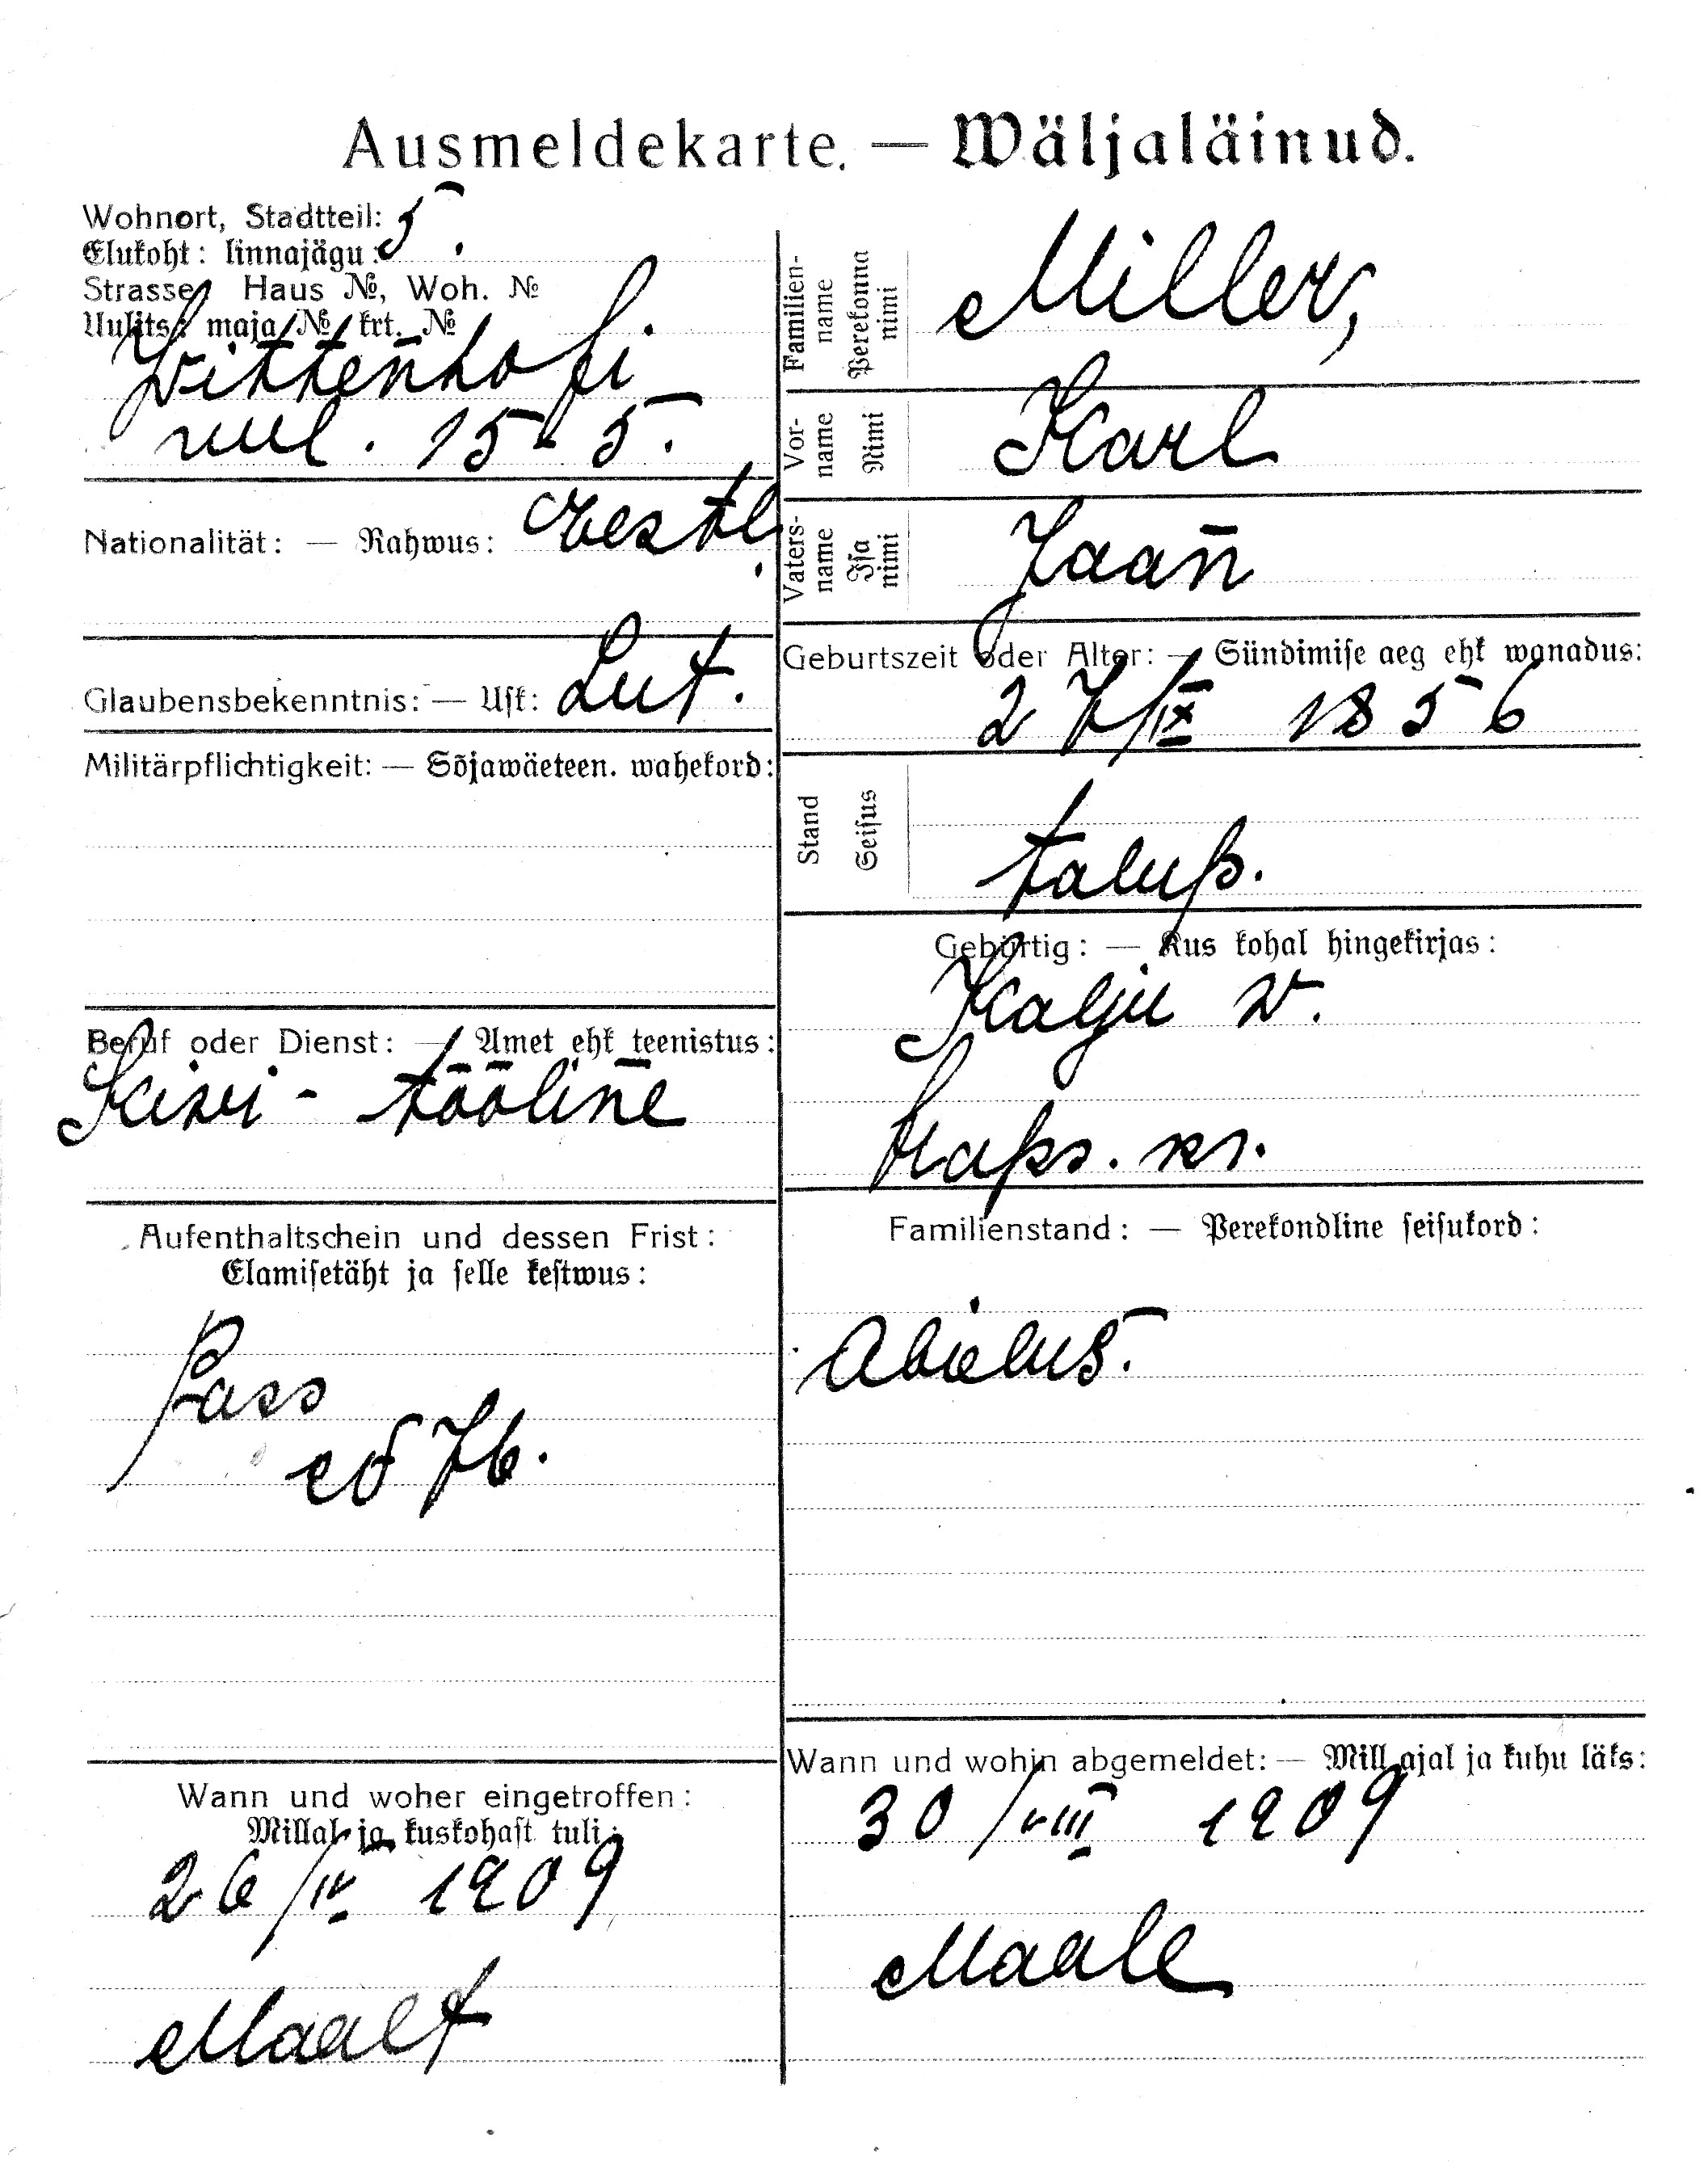 Ausmeldekarte. — Wäljaläinud.
Wohnort, Stadtteil: 5.
Elukoht: linnajägu:
Strasse, Haus №, Woh. №
Uulits, maja № krt. №
Wittenhofi
uul. 15-5.
Nationalität: — Rahwus: Eestl.
Glaubensbekenntnis: — Usk: Lut.
Militärpflichtigkeit: — Sõjawäeteen. wahekord:
Beruf oder Dienst: — Amet ehk teenistus:
Kiwi-tööline
Aufenthaltschein und dessen Frist:
Elamisetäht ja selle kestwus:
Pass
76.
Wann und woher eingetroffen:
Millal ja kuskohast tuli:
26/IV 1909
Maalt
Familien-
name
Perekonna
nimi
Miller,
Vor-
name
Nimi
Karl
Vaters-
name
Isa
nimi
Jaan
Geburtszeit oder Alter: — Sündimise aeg ehk wanadus:
27/IX 1856
Stand
Seisus
talup.
Gebürtig: — Kus kohal hingekirjas:
Kalju w.
Haps. kr.
Familienstand: — Perekondline seisukord:
Abielus.
Wann und wohin abgemeldet: — Mill ajal ja kuhu läks:
30/VIII 1909
Maale